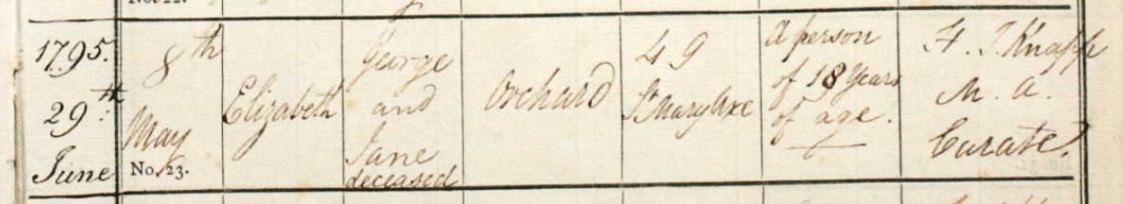 No. 22.
1795.
29th
June
8th
May
No. 23.
Elizabeth
George
and
Jane
deceased
Orchard
49
St Mary Axe
A person
of 18 Years
of age.
H. J. Knapp
M. A.
Curate.